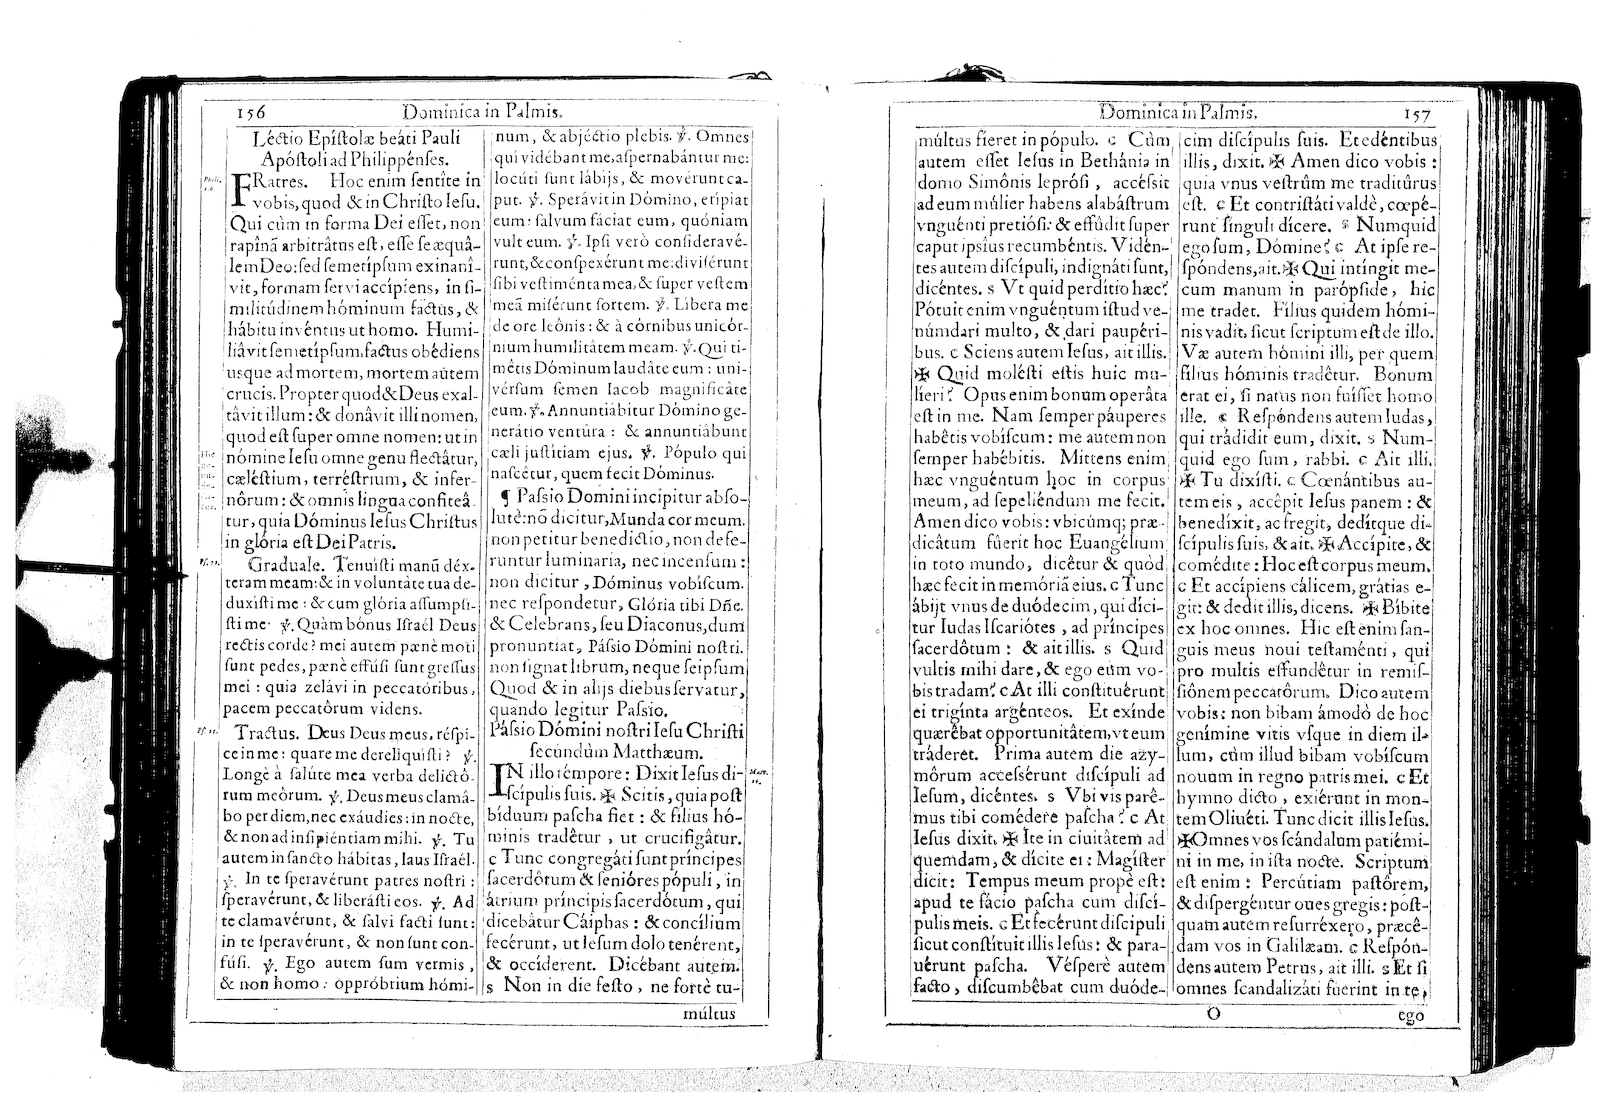 156 Dominica in Palmis.
Léctio Epiſtolæ beáti Pauli
Apóſtoli ad Philippénſes.
FRatres. Hoc enim ſentîte in
vobis, quod & in Chriſto Ieſu.
Qui cùm in forma Dei eſſet, non
rapínã arbitrâtus eſt, eſſe ſe æquâ-
lem Deo: ſed ſemetípſum exinanî-
vit, formam ſervi accípiens, in ſi-
militúdinem hóminum factus, &
hábitu invéntus ut homo. Humi-
liâvit ſemetípſum, factus obédiens
usque ad mortem, mortem aûtem
crucis. Propter quod & Deus exal-
tâvit illum: & donâvit illi nomen,
quod eſt ſuper omne nomen: ut in
nómine Ieſu omne genu flectâtur,
cæléſtium, terréſtrium, & infer-
nôrum: & omnis lingua confiteâ-
tur, quia Dóminus Ieſus Chriſtus
in glória eſt Dei Patris.
Graduale. Tenuîſti manũ déx-
teram meam: & in voluntâte tua de-
duxîſti me: & cum glória aſſumpſi-
ſti me. ℣. Quàm bónus Iſraél Deus
rectis corde? mei autem pænè moti
ſunt pedes, pænè effúſi ſunt greſſus
mei: quia zelávi in peccatóribus,
pacem peccatôrum videns.
Tractus. Deus Deus meus, réſpi-
ce in me: quare me dereliquiſti? ℣.
Longè à ſalúte mea verba delictô-
rum meôrum. ℣. Deus meus clamá-
bo per diem, nec exáudies: in nocte,
& non ad inſipiéntiam mihi. ℣. Tu
autem in ſancto hábitas, laus Iſraél.
℣. In te ſperavérunt patres noſtri:
ſperavérunt, & liberáſti eos. ℣. Ad
te clamavérunt, & ſalvi facti ſunt:
in te ſperavérunt, & non ſunt con-
fúſi. ℣. Ego autem ſum vermis,
& non homo: oppróbrium hómi-
num, & abjéctio plebis. ℣. Omnes
qui vidébant me, aſpernabántur me:
locúti ſunt lábijs, & movérunt ca-
put. ℣. Sperávit in Dómino, erípiat
eum: ſalvum fáciat eum, quóniam
vult eum. ℣. Ipſi verò conſideravé-
runt, & conſpexérunt me: diviſérunt
ſibi veſtiménta mea, & ſuper veſtem
meã miſérunt ſortem. ℣. Libera me
de ore leônis: & à córnibus unicór-
nium humilitâtem meam. ℣. Qui ti-
mêtis Dóminum laudâte eum: uni-
vérſum ſemen Iacob magnificâte
eum. ℣. Annuntiábitur Dómino ge-
nerátio ventúra: & annuntiábunt
cæli juſtitiam ejus. ℣. Pópulo qui
naſcétur, quem fecit Dóminus.
¶ Paſsio Domini incipitur abſo-
lutè: nõ dicitur, Munda cor meum.
non petitur benedictio, non defe-
runtur luminaria, nec incenſum:
non dicitur, Dóminus vobíſcum.
nec reſpondetur, Glória tibi Dñe.
& Celebrans, ſeu Diaconus, dum
pronuntiat, Páſsio Dómini noſtri.
non ſignat librum, neque ſeipſum
Quod & in alijs diebus ſervatur,
quando legitur Paſsio.
Páſsio Dómini noſtri Ieſu Chriſti
ſecúndùm Matthæum.
IN illo témpore: Dixit Ieſus di-
ſcípulis ſuis. ✠ Scitis, quia poſt
bíduum paſcha fiet: & filius hó-
minis tradêtur, ut crucifigâtur.
c Tunc congregáti ſunt príncipes
ſacerdôtum & ſenióres pópuli, in
átrium príncipis ſacerdótum, qui
dicebâtur Cáiphas: & concílium
fecérunt, ut Ieſum dolo tenérent,
& occíderent. Dicébant autem.
s Non in die feſto, ne fortè tu-
múltus
Dominica in Palmis. 157
múltus fíeret in pópulo. c Cùm
autem eſſet Ieſus in Bethánia in
domo Simônis leprôſi, accéſsit
ad eum múlier habens alabáſtrum
vnguénti pretióſi: & effûdit ſuper
caput ipſius recumbéntis. Vidén-
tes autem diſcípuli, indignáti ſunt,
dicéntes. s Vt quid perdítio hæc?
Pótuit enim vnguéntum iſtud ve-
númdari multo, & dari paupéri-
bus. c Sciens autem Ieſus, ait illis.
✠ Quid moléſti eſtis huic mu-
lieri? Opus enim bonum operâta
eſt in me. Nam ſemper páuperes
habêtis vobíſcum: me autem non
ſemper habébitis. Mittens enim
hæc vnguéntum hoc in corpus
meum, ad ſepeliéndum me fecit.
Amen dico vobis: vbicúmq; præ-
dicâtum fûerit hoc Euangélium
in toto mundo, dicêtur & quòd
hæc fecit in memóriã eius. c Tunc
ábijt vnus de duódecim, qui díci-
tur Iudas Iſcariótes, ad príncipes
ſacerdôtum: & ait illis. s Quid
vultis mihi dare, & ego eum vo-
bis tradam? c At illi conſtituérunt
ei trigínta argénteos. Et exínde
quærêbat opportunitâtem, vt eum
tráderet. Prima autem die azy-
mórum acceſsérunt diſcípuli ad
Ieſum, dicéntes. s Vbi vis parê-
mus tibi comédere paſcha? c At
Ieſus dixit. ✠ Ite in ciuitâtem ad
quemdam, & dícite ei: Magíſter
dicit: Tempus meum propè eſt:
apud te fácio paſcha cum diſcí-
pulis meis. c Et fecérunt diſcípuli
ſicut conſtituit illis Ieſus: & para-
uérunt paſcha. Véſperè autem
facto, diſcumbêbat cum duóde-
cim diſcípulis ſuis. Et edéntibus
illis, dixit. ✠ Amen dico vobis:
quia vnus veſtrûm me traditûrus
eſt. c Et contriſtáti valdè, cœpé-
runt ſínguli dícere. s Numquid
ego ſum, Dómine? c At ipſe re-
ſpóndens, ait. ✠ Qui intíngit me-
cum manum in parópſide, hic
me tradet. Fílius quidem hómi-
nis vadit, ſicut ſcriptum eſt de illo.
Væ autem hómini illi, per quem
filius hóminis tradêtur. Bonum
erat ei, ſi natus non fuiſſet homo
ille. c Reſpóndens autem Iudas,
qui trádidit eum, dixit. s Num-
quid ego ſum, rabbi. c Ait illi.
✠ Tu dixíſti. c Cœnántibus au-
tem eis, accêpit Ieſus panem: &
benedíxit, ac fregit, dedítque di-
ſcípulis ſuis, & ait. ✠ Accípite, &
comédite: Hoc eſt corpus meum.
c Et accípiens cálicem, grátias e-
git: & dedit illis, dicens. ✠ Bíbite
ex hoc omnes. Hic eſt enim ſan-
guis meus noui teſtaménti, qui
pro multis effundêtur in remiſ-
ſiônem peccatôrum. Dico autem
vobis: non bibam ámodò de hoc
genímine vitis vſque in diem il-
lum, cùm illud bibam vobíſcum
nouum in regno patris mei. c Et
hymno dicto, exiérunt in mon-
tem Oliuéti. Tunc dicit illis Ieſus.
✠Omnes vos ſcándalum patiémi-
ni in me, in iſta nocte. Scriptum
eſt enim: Percútiam paſtôrem,
& diſpergéntur oues gregis: poſt-
quam autem reſurréxero, præcê-
dam vos in Galilæam. c Reſpón-
dens autem Petrus, ait illi. s Et ſi
omnes ſcandalizáti fúerint in te,
O ego